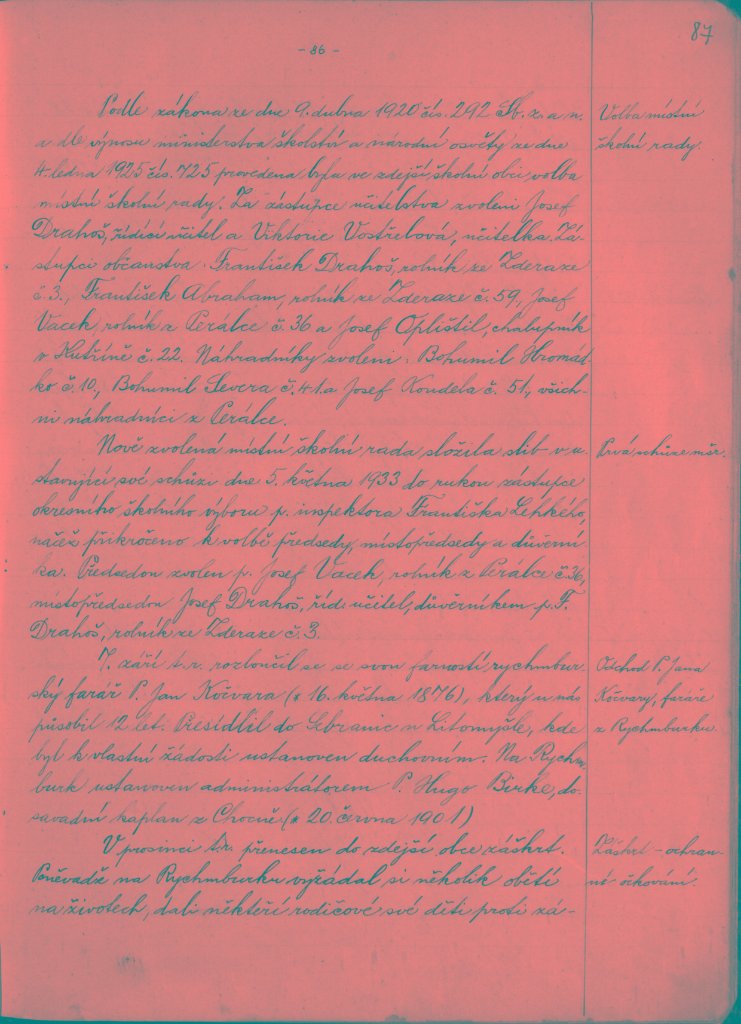 87
- 86 -
Podle zákona ze dne 9. dubna 1920 čís. 292 Sb. z. a n.
Volba místní
a dle výnosu ministerstva školství a národní osvěty ze dne
školní rady.
4. ledna 1925 čís. 725 provedena byla ve zdejší školní obci volba
místní školní rady. Za zástupce učitelstva zvoleni Josef
Drahoš, řídící učitel a Viktorie Vostřelová, učitelka. Zá-
stupci občanstva: František Drahoš, rolník ze Zderaze
č. 3., František Abraham, rolník ze Zderaze č. 59, Josef
Vacek, rolník z Perálce č. 36 a Josef Oplištil, chalupník
v Kutříně č. 22. Náhradníky zvoleni: Bohumil Hromád
ko č. 10., Bohumil Severa č. 41. a Josef Koudela č. 51., všich-
ni náhradníci z Perálce.
Nově zvolená místní školní rada složila slib v u-
Prvá schůze mšr.
stavující své schůzi dne 5. května 1933 do rukou zástupce
okresního školního výboru p. inspektora Františka Lehkého,
načež přikročeno k volbě předsedy, místopředsedy a důvěrní
ka. Předsedou zvolen p. Josef Vacek, rolník z Perálce č. 36,
místopředsedou Josef Drahoš, říd. učitel, důvěrníkem p. F.
Drahoš, rolník ze Zderaze č. 3.
7. září t. r. rozloučil se se svou farností rychmbur-
Odchod P. Jana
ský farář P. Jan Kočvara (* 16. května 1876), který u nás
Kočvary, faráře
působil 12 let. Přesídlil do Sebranic u Litomyšle, kde
z Rychmburku.
byl k vlastní žádosti ustanoven duchovním. Na Rychm-
burk ustanoven administrátorem P. Hugo Birke, do-
savadní kaplan z Chocně (* 20. června 1901)
V prosinci t. r. přenesen do zdejší obce záškrt.
Záškrt - ochran-
Poněvadž na Rychmburku vyžádal si několik obětí
né očkování.
na životech, dali někteří rodičové své děti proti zá-